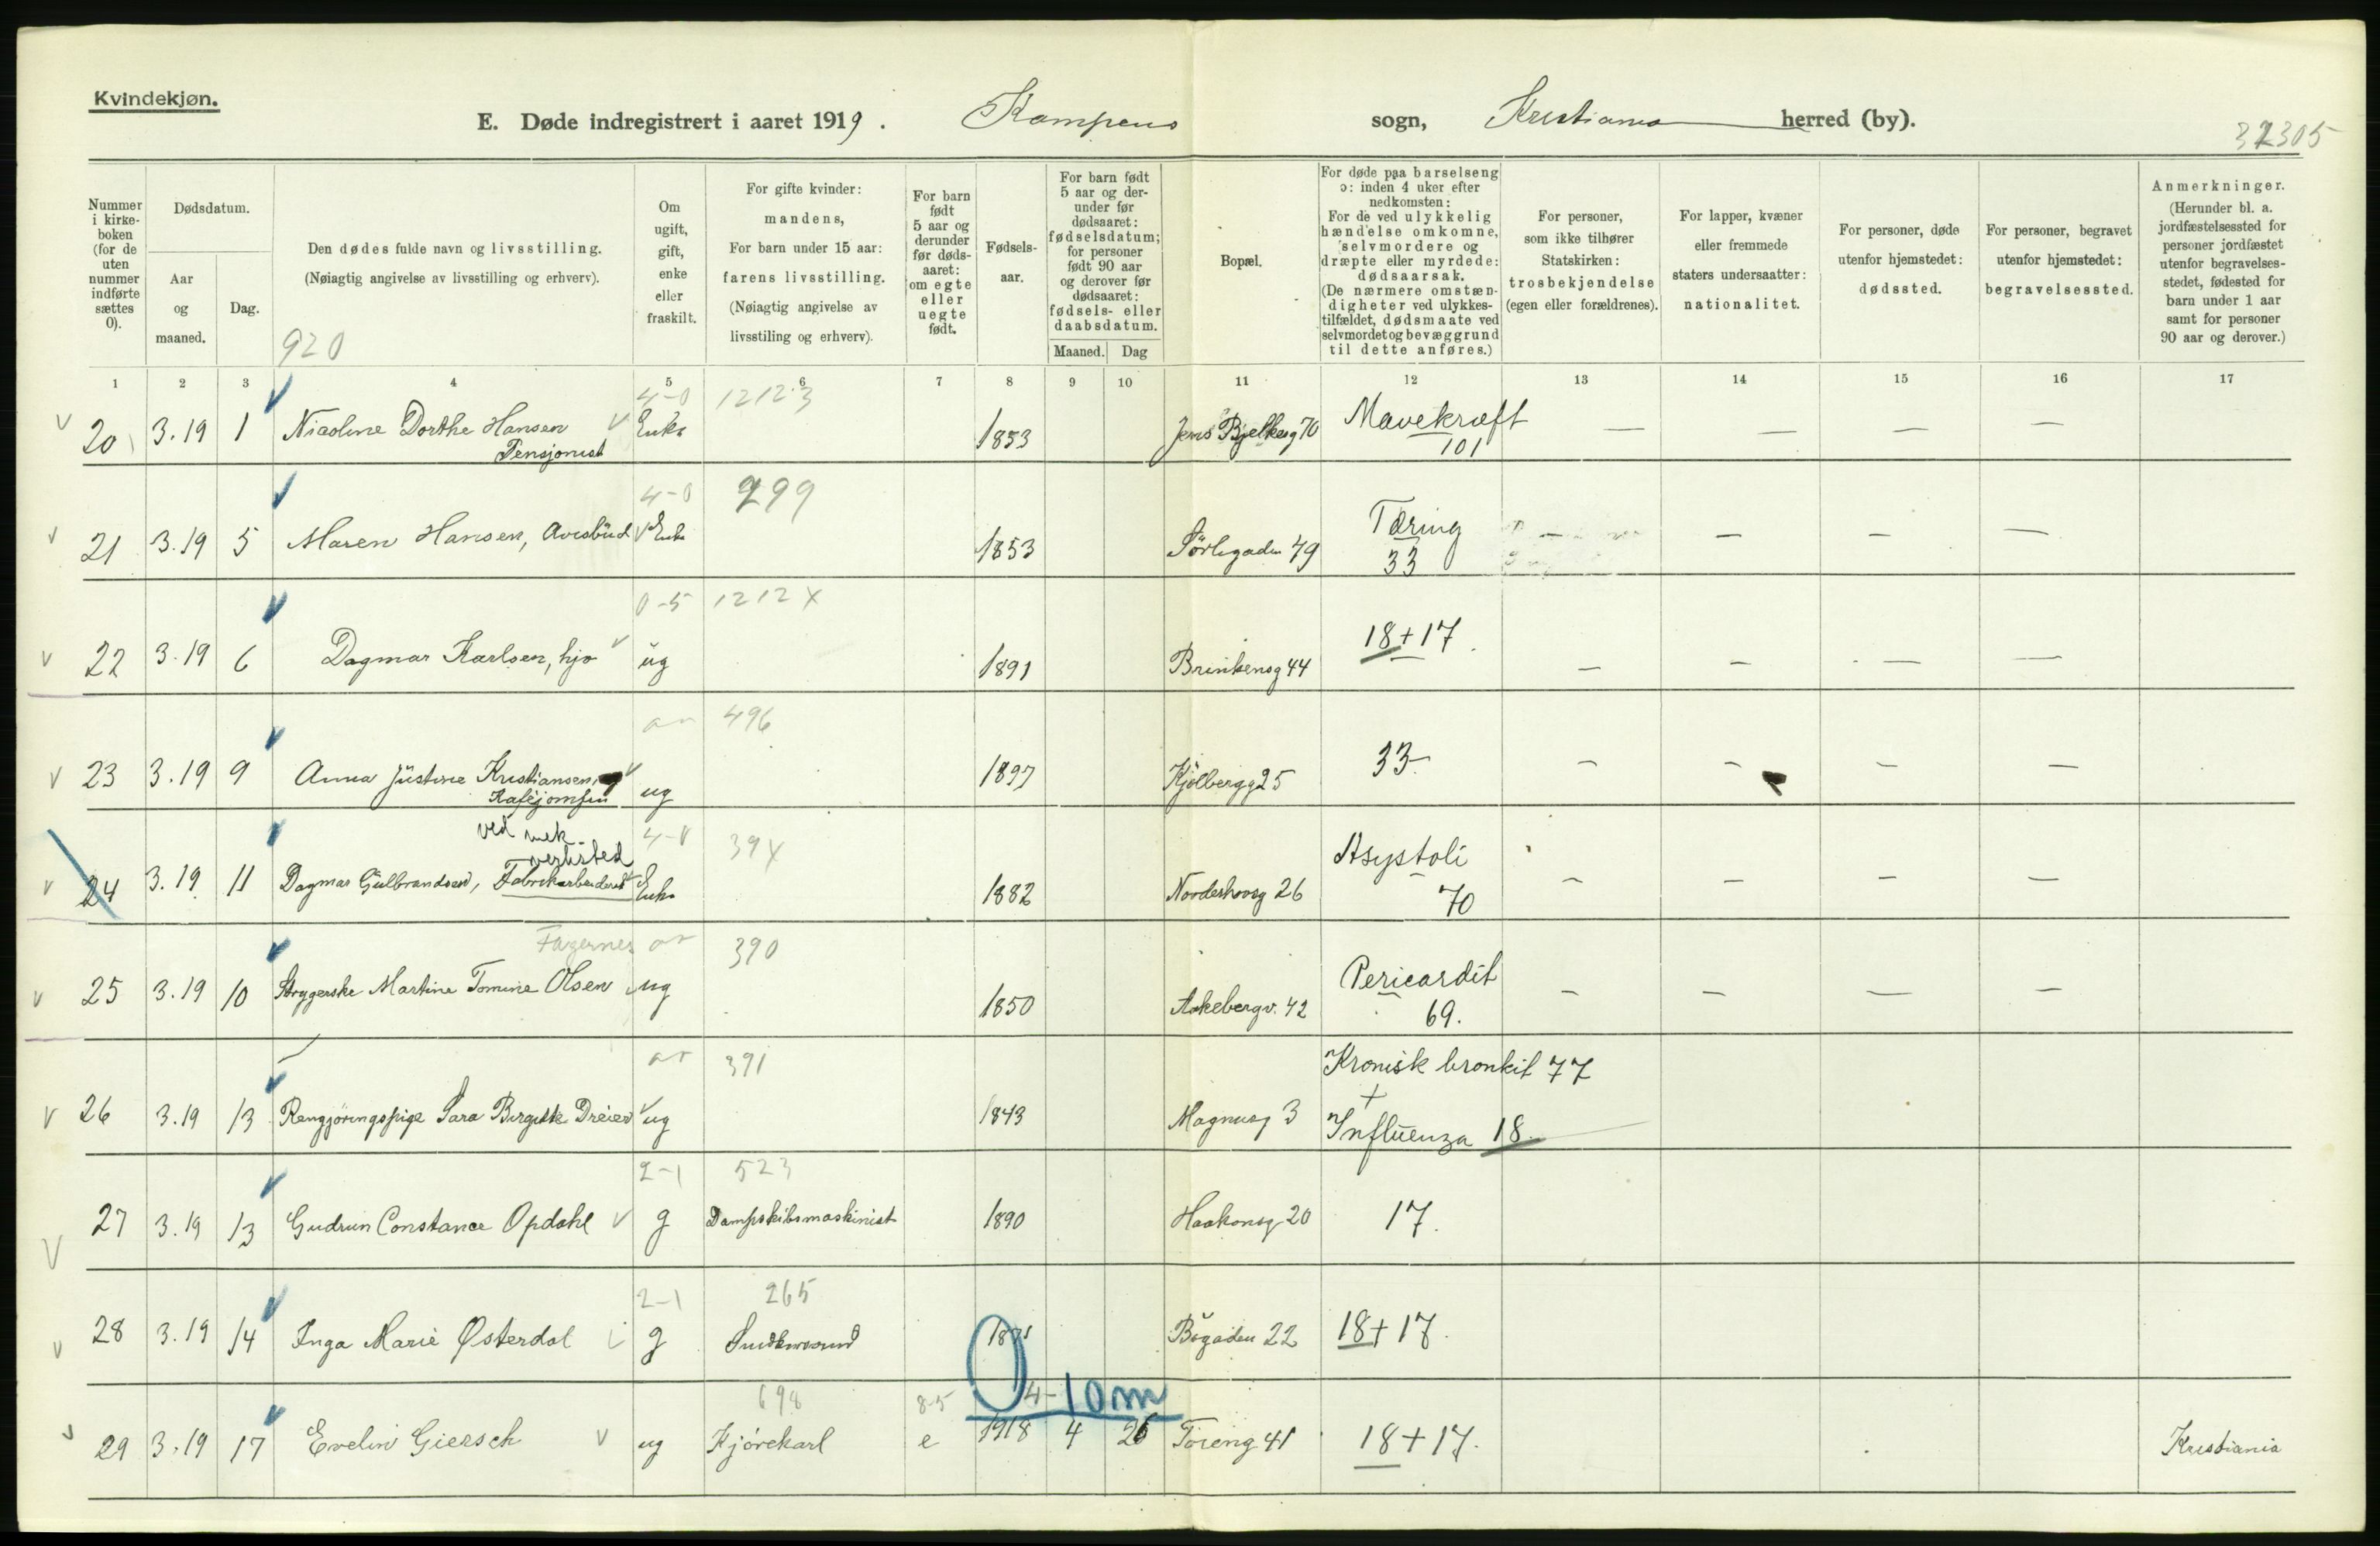 Kvindekjøn.
E. Døde indregistrert i aaret 1919. Kampens sogn, Kristiania herred (by).
32305
Nummer i kirkeboken (for de uten nummer indførte sættes 0).
Dødsdatum.
Aar og maaned.
Dag.
Den dødes fulde navn og livsstilling.
(Nøiagtig angivelse av livsstilling og erhverv).
920
Om ugift, gift, enke eller fraskilt.
For gifte kvinder:
mandens,
For barn under 15 aar:
farens livsstilling.
(Nøiagtig angivelse av
livsstiling og erhverv).
For barn født 5 aar og derunder før dødsaaret: om egte eller uegte født.
Fødselsaar.
For barn født 5 aar og derunder før dødsaaret: fødselsdatum; for personer født 90 aar og derover før dødsaaret: fødsels- eller daabsdatum.
Maaned. Dag
Bopæl.
For døde paa barselseng ɔ: inden 4 uker efter nedkomsten:
For de ved ulykkelig hændelse omkomne, selvmordere og dræpte eller myrdede: dødsaarsak.
(De nærmere omstændigheter ved ulykkestilfældet, dødsmaate ved selvmordet og bevæggrund til dette anføres.)
For personer, som ikke tilhører Statskirken: trosbekjendelse (egen eller forældrenes).
For lapper, kvæner eller fremmede staters undersaatter: nationalitet.
For personer, døde utenfor hjemstedet: dødssted.
For personer, begravet utenfor hjemstedet: begravelsessted.
Anmerkninger.
(Herunder bl. a. jordfæstelsessted for personer jordfæstet utenfor begravelsesstedet, fødested for barn under 1 aar samt for personer 90 aar og derover.)
1 2 3 4 5 6 7 8 9 10 11 12 13 14 15 16 17
4-0 1212.3
20 3.19 1 Nicoline Dorthe Hansen Enke 1853 Jens Bjelkesg 70 Mavekræft — — — —
Pensjonist 101
4-0 299
21 3.19 5 Maren Hansen, Avisbud Enke 1853 Sörligaden 49 Tæring — — — —
33
0-5 1212 X
22 3.19 6 Dagmar Karlsen, hjo ug 1891 Brinkensg 44 18+17. — — — —
496
23 3.19 9 Anna Justine Kristiansen, ug 1897 Kjölbergg 25 33 — — — —
Kaféjomfru
ved mek. verksted
4-0 39X
24 3.19 11 Dagmar Gulbrandsen, Fabrikarbeiderske Enke 1882 Norderhovsg 26 Asystoli — — — —
70
Fagernes 390
25 3.19 10 Strygerske Martine Tomine Olsen ug 1850 Aakebergv. 42 Pericardit — — — —
69.
391
26 3.19 13 Rengjöringspige Sara Birgitte Dreier ug 1843 Magnusg 3 Kronisk bronkit 77
+
Influenza 18
2-1 523
27 3.19 13 Gudrun Constance Opdahl g Dampskibsmaskinist 1890 Haakonsg 20 17.
2-1 265
28 3.19 14 Inga Marie Østerdal g 1871 Bögaden 22 18+17.
698 8-5 4- 10 m
29 3.19 17 Evelin Giersch ug Kjörekarl e 1918 4 26 Töieng 41 18+17. Kristiania